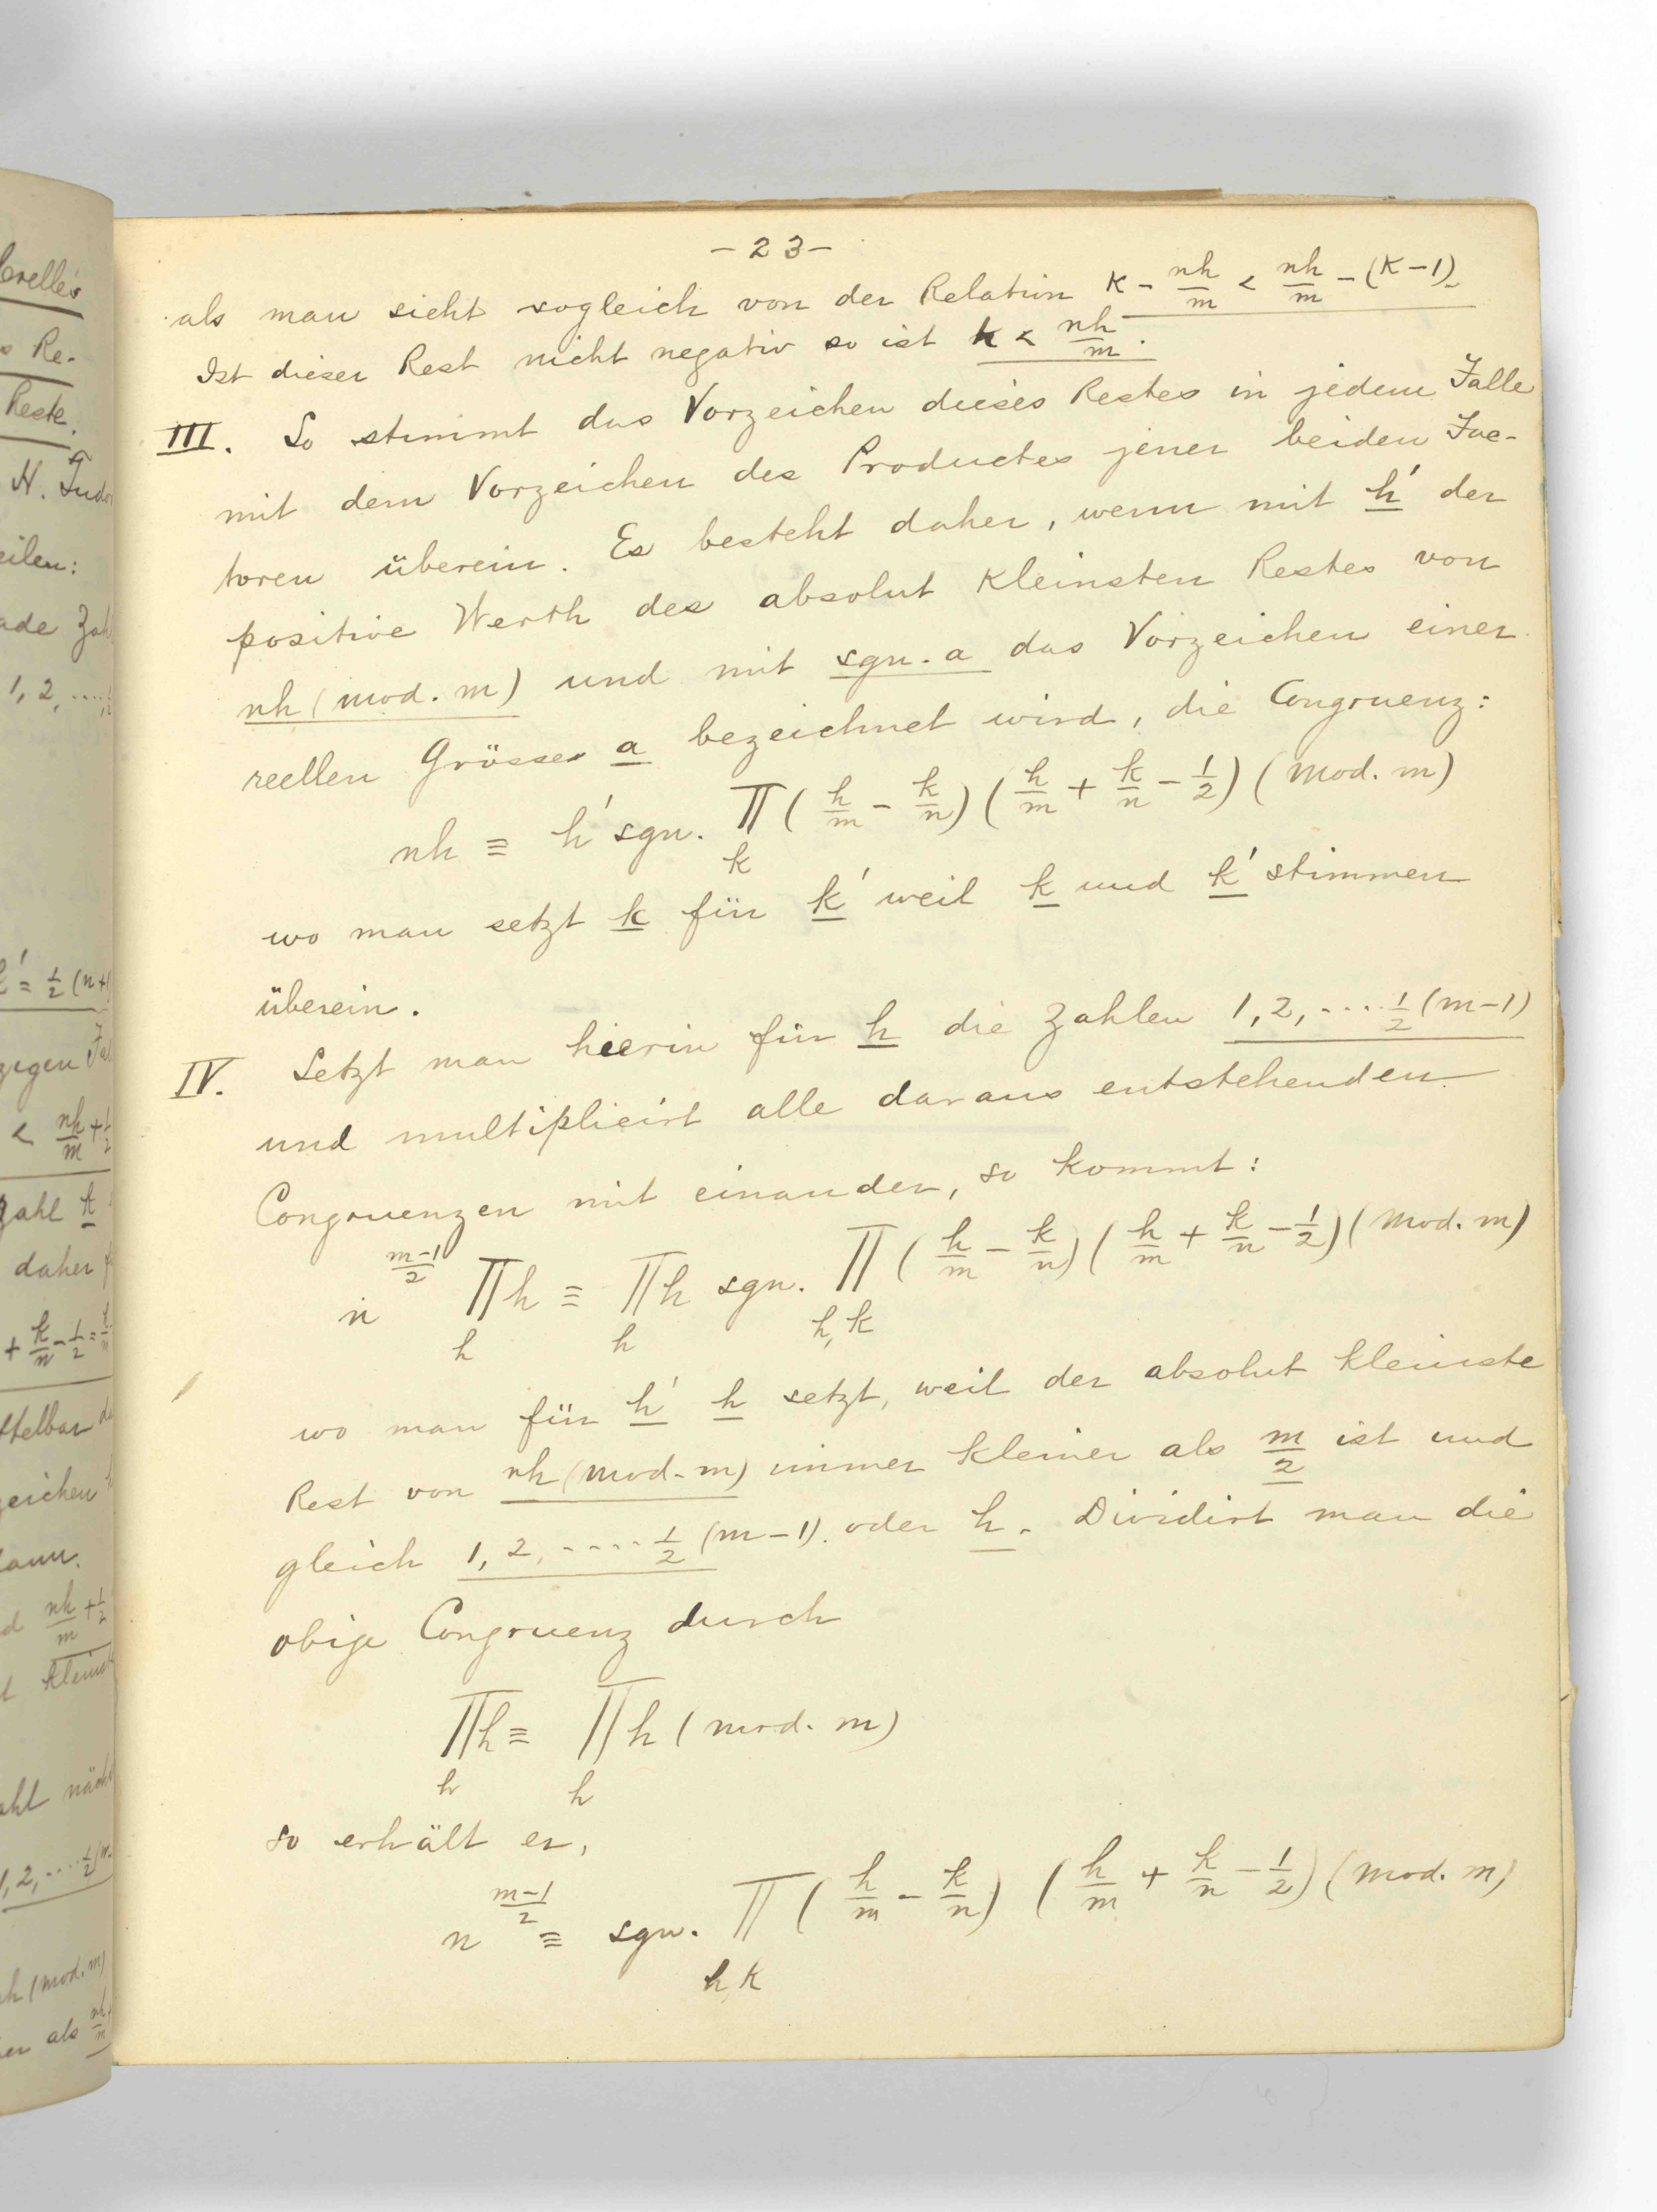 -23-
als man sieht sogleich von der Relation K - nh/m < nh/m - (K-1).
Ist dieser Rest nicht negativ so ist k < nh/m.
III. So stimmt das Vorzeichen dieses Restes in jedem Falle
mit dem Vorzeichen des Productes jener beiden Fac-
toren überein. Es besteht daher, wenn mit h' der
positive Werth des absolut kleinsten Restes von
nh (mod. m) und mit sgn. a das Vorzeichen einer
reellen Grösse a bezeichnet wird, die Congruenz:
nh ≡ h' sgn. ∏_k (h/m - k/n) (h/m + k/n - 1/2) (mod. m)
wo man setzt k für k' weil k und k' stimmen
überein.
IV. Setzt man hierin für h die Zahlen 1, 2, .... 1/2 (m-1)
und multiplicirt alle daraus entstehenden
Congruenzen mit einander, so kommt:
n^((m-1)/2) ∏_h h ≡ ∏_h h sgn. ∏_h,k (h/m - k/n) (h/m + k/n - 1/2) (mod. m)
wo man für h' h setzt, weil der absolut kleinste
Rest von nh (mod. m) immer kleiner als m/2 ist und
gleich 1, 2, .... 1/2 (m-1). oder h. Dividirt man die
obige Congruenz durch
∏_h h ≡ ∏_h h (mod. m)
so erhält er,
n^((m-1)/2) ≡ sgn. ∏_h,k (h/m - k/n) (h/m + k/n - 1/2) (mod. m)